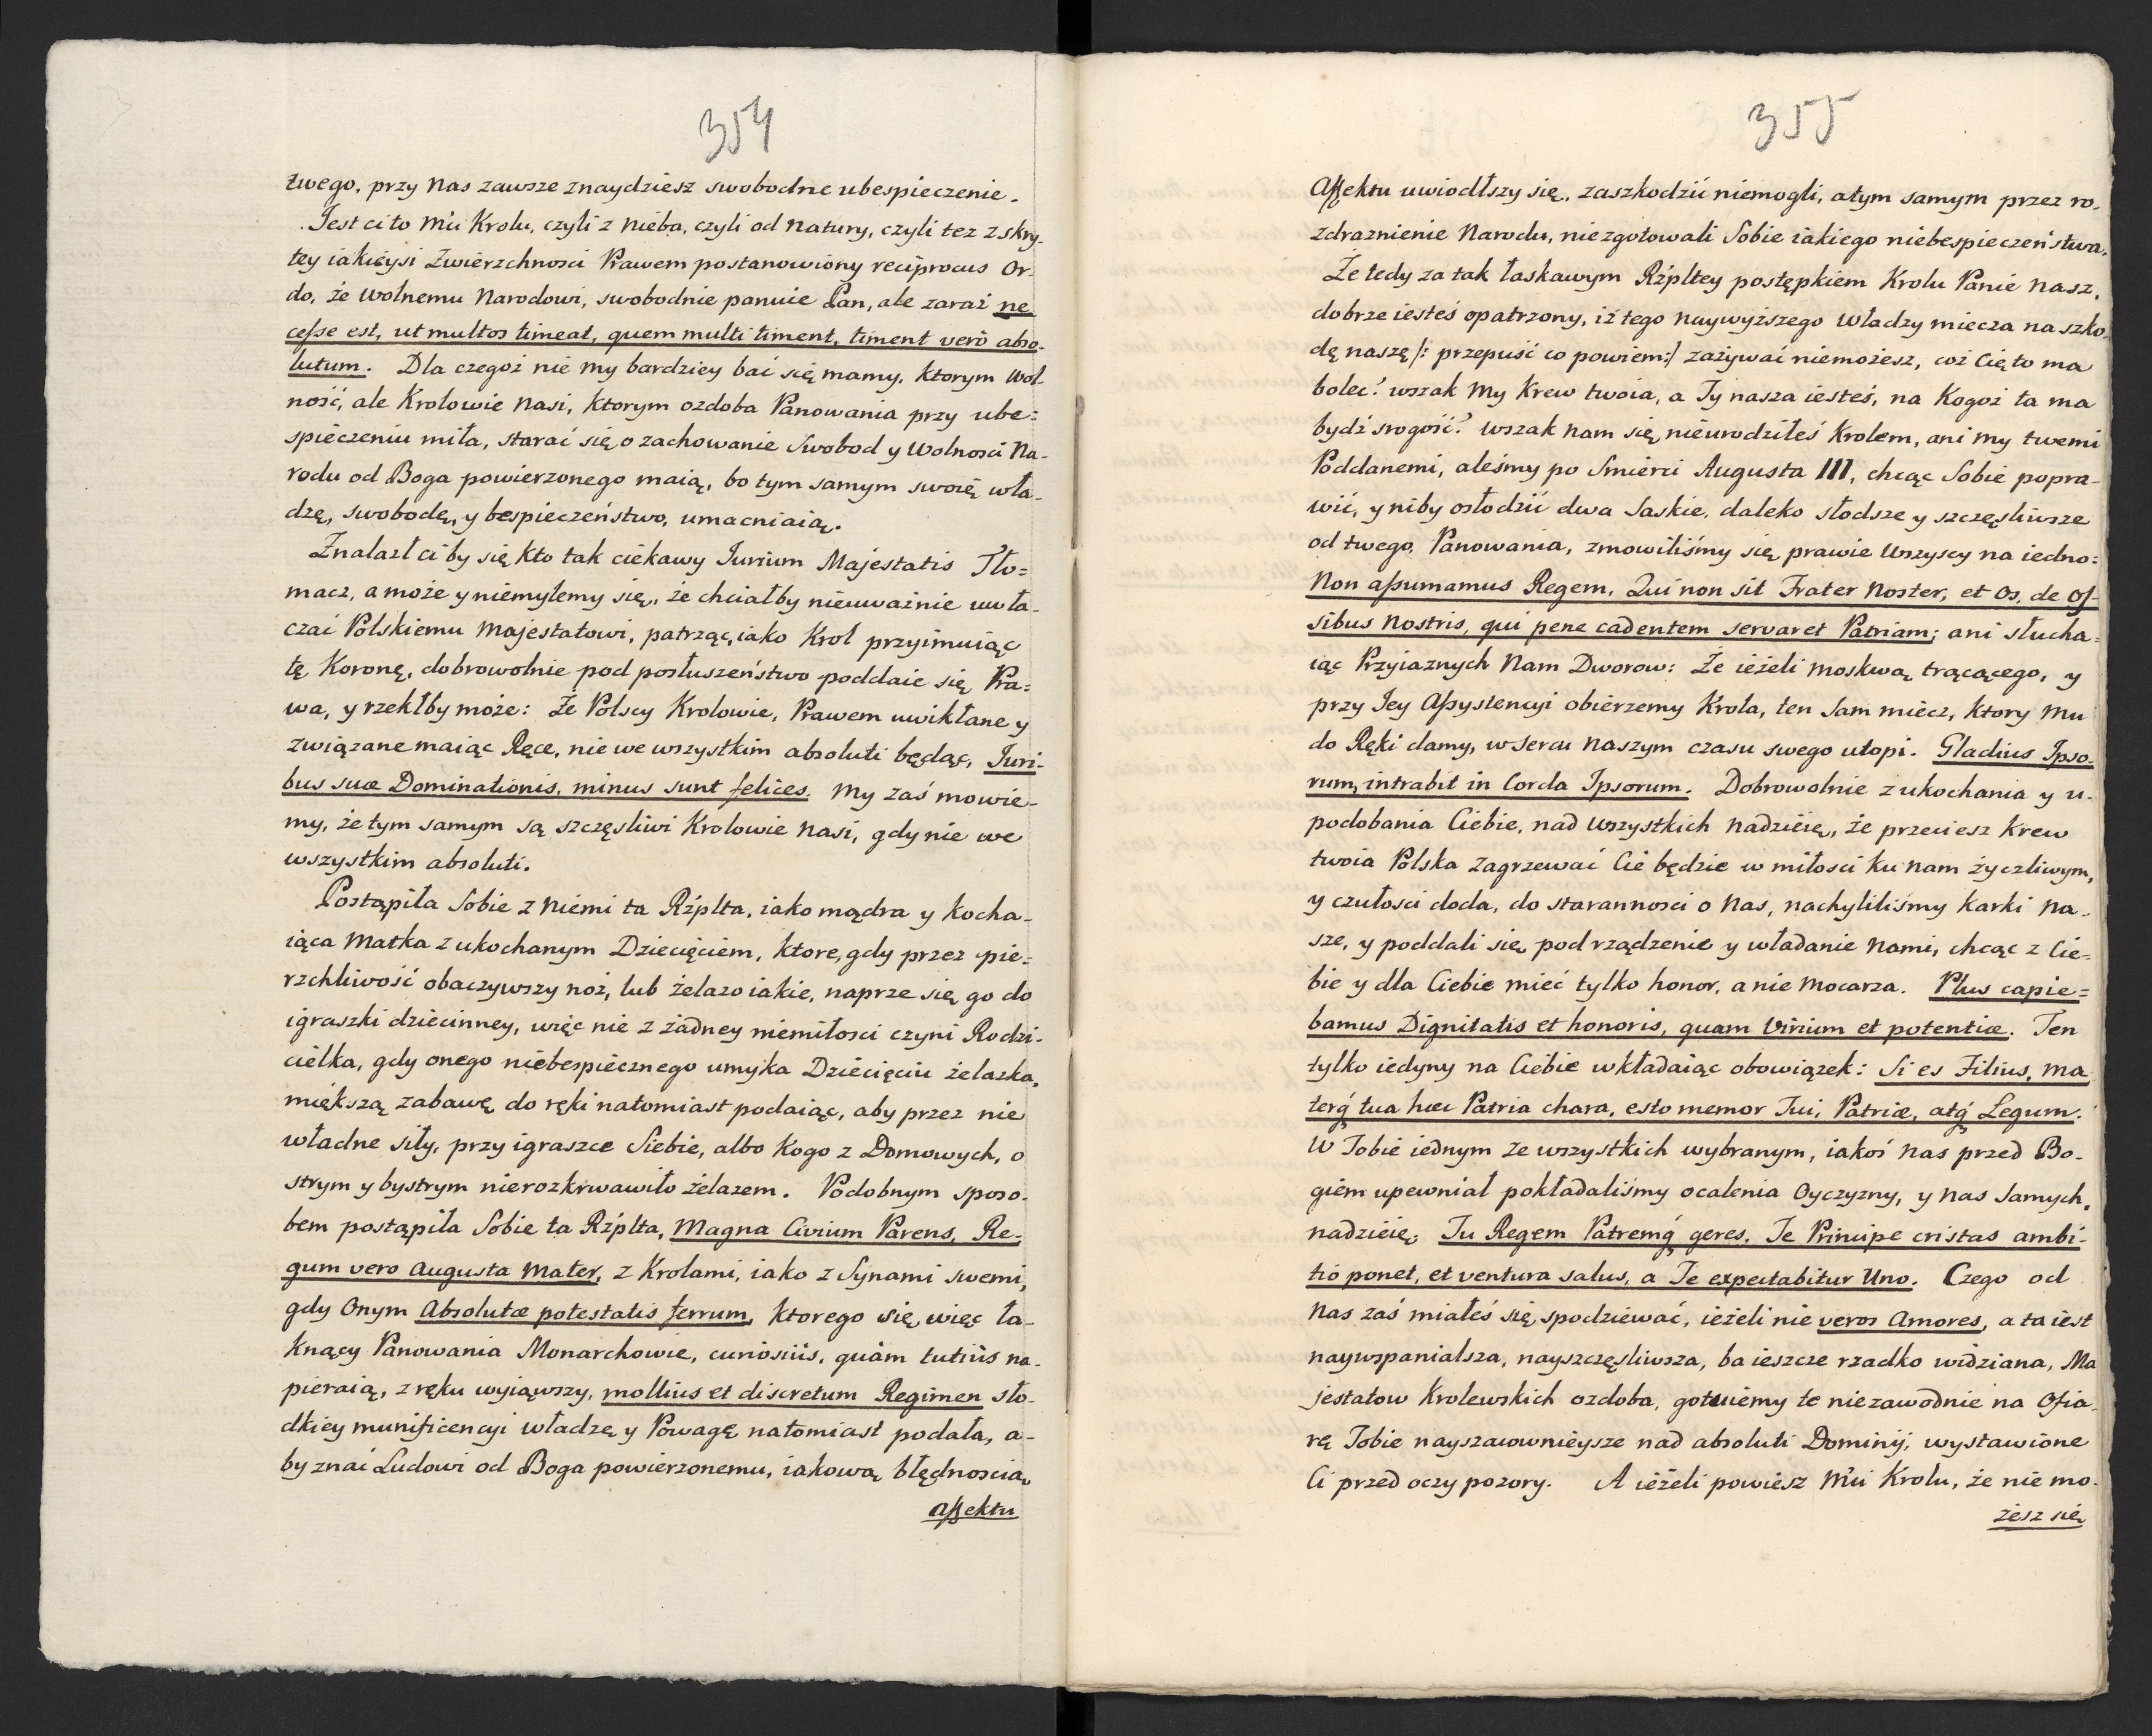 354
twego, przy nas zawsze znaydziesz swobodne ubespieczenie.
Jest ci to Mći Krolu, czyli z nieba, czyli od natury, czyli tez z skry-
tey iakieysi Zwierzchnosci Prawem postanowiony reciprocus Or-
do, że wolnemu narodowi, swobodnie panuie Pan, ale zaraz ne
cesse est, ut multos timeat, quem multi timent, timent verò abso-
lutum. Dla czegoż nie my bardziey bać się mamy, ktorym Wol-
ność, ale Krolowie nasi, ktorym ozdoba Panowania przy ube=
spieczeniu miła, starać się o zachowanie Swobod y Wolnosci Na-
rodu od Boga powierzonego maią, bo tym samym swoię wła-
dzę, swobodę, y bespieczeństwo, umacniaią.
Znalazł ci by się kto tak ciekawy Iurium Majestatis Tło=
macz, a może y niemylemy się, że chciałby nieuważnie uwła-
czać Polskiemu Majestatowi, patrząc, iako Krol przyimuiąc
tę Koronę, dobrowolnie pod posłuszeństwo poddaie się Pra=
wa, y rzekłby może: Że Polscy Krolowie, Prawem uwikłane y
związane maiąc Ręce, nie we wszystkim absoluti będąc, Iuri-
bus suæ Dominationis, minus sunt felices. My zaś mowie-
my, że tym samym są szczęsliwi Krolowie nasi, gdy nie we
wszystkim absoluti.
Postąpiła Sobie z niemi ta Rżplta, iako mądra y kocha-
iąca Matka z ukochanym Dziecięciem, ktore, gdy przez pie=
rzchliwość obaczywszy noż, lub żelazo iakie, naprze się go do
igraszki dziecinney, więc nie z żadney niemiłosci czyni Rodzi-
cielka, gdy onego niebespiecznego umyka Dziecięciu żelazka,
miększą zabawę do ręki natomiast podaiąc, aby przez nie
władne siły, przy igraszce Siebie, albo kogo z Domowych, o
strym y bystrym nierozkrwawiło żelazem. Podobnym sposo-
bem postąpiła Sobie ta Rżplta, Magna Civium Parens, Re-
gum vero Augusta Mater, z Krolami, iako z Synami swemi,
gdy Onym Absolutæ potestatis ferrum, ktorego się więc ła-
knący Panowania Monarchowie, curiosiùs, quàm tutiùs na-
pieraią, z ręku wyiąwszy, mollius et discretum Regimen sło-
dkiey munificencyi władzę y Powagę natomiast podała, a-
by znać Ludowi od Boga powierzonemu, iakową błędnoscią
affektu
355
Affektu uwiodłszy się, zaszkodzić niemogli, a tym samym przez ro-
zdraznienie Narodu, niezgotowali Sobie iakiego niebespieczeństwa.
Że tedy za tak łaskawym Rżpltey postępkiem Krolu Panie nasz,
dobrze iesteś opatrzony, iż tego naywyższego władzy miecza na szko-
dę naszę /: przepuść co powiem:/ zażywać niemożesz, coż Cię to ma
boleć? wszak my Krew twoia, a Ty nasza iesteś, na kogoż ta ma
bydź srogość? wszak nam się nieurodziłeś Krolem, ani my twemi
Poddanemi, aleśmy po Smierci Augusta III, chcąc Sobie popra-
wić, y niby osłodzić dwa Saskie, daleko słodsze y szczęsliwsze
od twego, Panowania, zmowiliśmy się, prawie wszyscy na iedno:
Non assumamus Regem, Qui non sit Frater Noster, et Os, de Os-
sibus Nostris, qui pene cadentem servaret Patriam; ani słucha=
iąc Przyiaznych Nam Dworow: Że ieżeli Moskwą trącącego, y
przy Jey Assystencyi obierzemy Krola, ten Sam miecz, ktory Mu
do Ręki damy, w sercu naszym czasu swego utopi. Gladius Ipso-
rum, intrabit in Corda Ipsorum. Dobrowolnie z ukochania y u-
podobania Ciebie, nad wszystkich nadzieię, że przeciesz Krew
twoia Polska zagrzewać Cie będzie w miłosci ku nam życzliwym,
y czułosci doda, do starannosci o nas, nachyliliśmy karki na-
sze, y poddali się pod rządzenie y władanie nami, chcąc z Cie-
bie y dla Ciebie mieć tylko honor, a nie Mocarza. Plus capie=
bamus Dignitatis et honoris, quam Virium et potentiæ. Ten
tylko iedyny na Ciebie wkładaiąc obowiązek: Si es Filius, Ma
terq́ tua hæc Patria chara, esto memor Tui, Patriæ, atq́ Legum.
W Tobie iednym ze wszystkich wybranym, iakoś nas przed Bo-
giem upewniał pokładaliśmy ocalenia Oyczyzny, y nas Samych,
nadzieię. Tu Regem Patremq́ geres, Te Principe cristas ambi-
tio ponet, et ventura salus, a Te expectabitur Uno. Czego od
nas zaś miałeś się spodziewać, ieżeli nie veros Amores, a ta iest
naywspanialsza, nayszczęsliwsza, ba ieszcze rzadko widziana, Ma
jestatow Krolewskich ozdoba, gotuiemy te niezawodnie na Ofia-
rę Tobie nayszacownieysze nad absoluti Dominij, wystawione
Ci przed oczy pozory. A ieżeli powiesz Mći Krolu, że nie mo-
żesz się